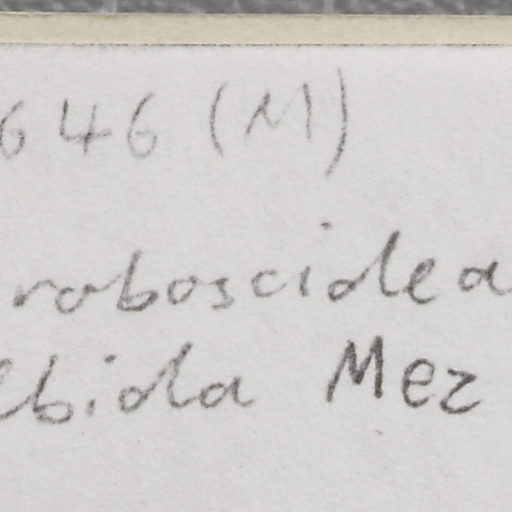 646 (M)
roboscidea
lbida Mez